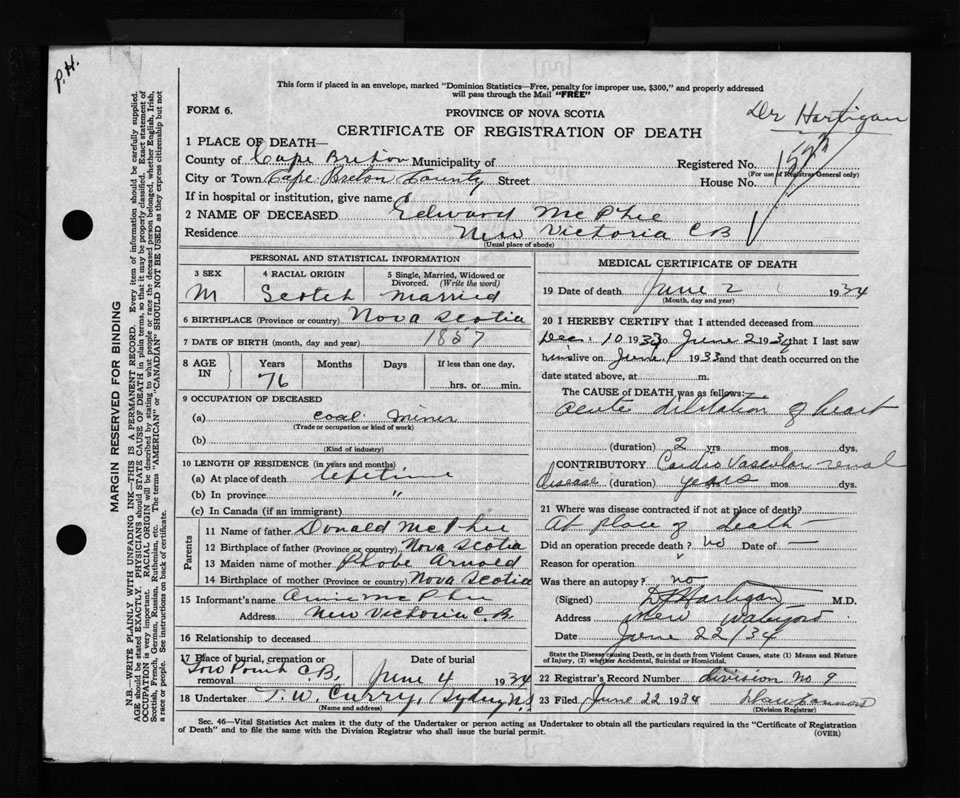 P. H.
This form if placed in an envelope, marked "Dominion Statistics—Free, penalty for improper use, $300," and properly addressed
will pass through the Mail "FREE"
FORM 6.
PROVINCE OF NOVA SCOTIA
Dr Hartigan
CERTIFICATE OF REGISTRATION OF DEATH
1 PLACE OF DEATH—
County of Cape Breton Municipality of Registered No.
(For use of Registrar General only)
City or Town Cape Breton County Street House No.
If in hospital or institution, give name
2 NAME OF DECEASED Edward McPhee
Residence New Victoria C B
(Usual place of abode)
PERSONAL AND STATISTICAL INFORMATION
3 SEX 4 RACIAL ORIGIN 5 Single, Married, Widowed or
Divorced. (Write the word)
M Scotch Married
6 BIRTHPLACE (Province or country) Nova Scotia
7 DATE OF BIRTH (month, day and year) 1857
8 AGE IN Years Months Days If less than one day,
76 hrs. or min.
9 OCCUPATION OF DECEASED
(a) coal miner
(Trade or occupation or kind of work)
(b)
(Kind of industry)
10 LENGTH OF RESIDENCE (in years and months)
(a) At place of death lifetime
(b) In province "
(c) In Canada (if an immigrant)
Parents
11 Name of father Donald McPhee
12 Birthplace of father (Province or country) Nova Scotia
13 Maiden name of mother Phobe Arnold
14 Birthplace of mother (Province or country) Nova Scotia
15 Informant's name Annie McPhee
Address New Victoria C. B.
16 Relationship to deceased
17 Place of burial, cremation or removal Date of burial
Low Point C. B. June 4 1934
18 Undertaker T. W. Curry, Sydney N.S
(Name and address)
MEDICAL CERTIFICATE OF DEATH
19 Date of death June 2 1934
(Month, day and year)
20 I HEREBY CERTIFY that I attended deceased from
Dec. 10 1933 to June 2 1934 that I last saw
him alive on June 1 1933 and that death occurred on the
date stated above, at m.
The CAUSE OF DEATH was as follows:
acute dilitation of heart
(duration) 2 yrs mos dys.
CONTRIBUTORY Cardio Vascular renal
disease (duration) years yrs mos. dys.
21 Where was disease contracted if not at place of death?
At place of death —
Did an operation precede death? no Date of —
Reason for operation
Was there an autopsy? no
(Signed) Hartigan M.D.
Address New Waterford
Date June 22/34
State the Disease causing Death, or in death from Violent Causes, state (1) Means and Nature
of Injury, (2) whether Accidental, Suicidal or Homicidal.
22 Registrar's Record Number division No 9
23 Filed June 22 1934
(Division Registrar)
Sec. 46—Vital Statistics Act makes it the duty of the Undertaker or person acting as Undertaker to obtain all the particulars required in the "Certificate of Registration
of Death" and to file the same with the Division Registrar who shall issue the burial permit.
(OVER)
MARGIN RESERVED FOR BINDING
N.B.—WRITE PLAINLY WITH UNFADING INK—THIS IS A PERMANENT RECORD. Every item of information should be carefully supplied.
AGE should be stated EXACTLY. PHYSICIANS should STATE CAUSE OF DEATH in plain terms, so that it may be properly classified. Exact statement of
OCCUPATION is very important. RACIAL ORIGIN will be described by stating to what people or race the deceased person belonged, whether English, Irish,
Scottish, French, German, Russian, Ruthenian, etc. The terms "AMERICAN" or "CANADIAN" SHOULD NOT BE USED as they express citizenship but not
a race or people. See instructions on back of certificate.